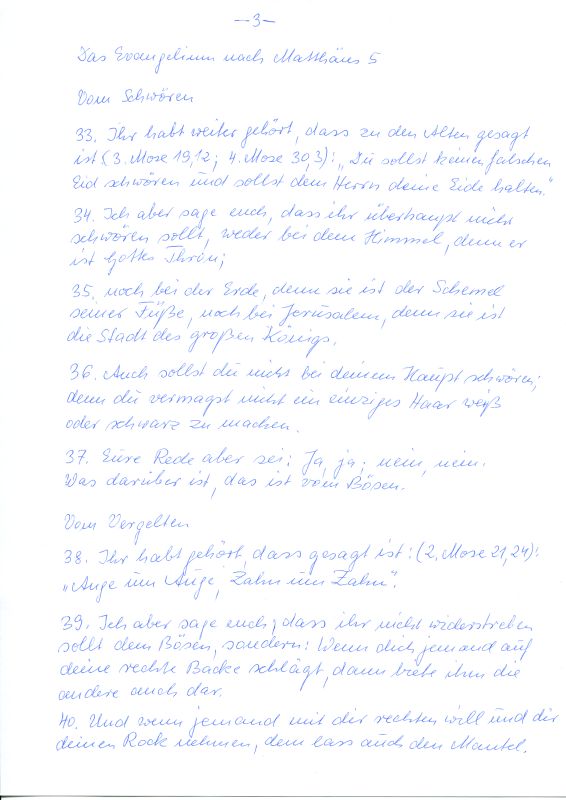 -3-
Das Evangelium nach Matthäus 5
Vom Schwören
33. Ihr habt weiter gehört, dass zu den Alten gesagt
ist (3. Mose 19,12; 4. Mose 30,3): „Du sollst keinen falschen
Eid schwören und sollst dem Herrn deine Eide halten."
34. Ich aber sage euch, dass ihr überhaupt nicht
schwören sollt, weder bei dem Himmel, denn er
ist Gottes Thron;
35. noch bei der Erde, denn sie ist der Schemel
seiner Füße, noch bei Jerusalem, denn sie ist
die Stadt des großen Königs.
36. Auch sollst du nicht bei deinem Haupt schwören;
denn du vermagst nicht ein einziges Haar weiß
oder schwarz zu machen.
37. Eure Rede aber sei: Ja, ja; nein, nein.
Was darüber ist, das ist vom Bösen.
Vom Vergelten
38. Ihr habt gehört, dass gesagt ist: (2. Mose 21,24):
„Auge um Auge, Zahn um Zahn".
39. Ich aber sage euch; dass ihr nicht widerstreben
sollt dem Bösen, sondern: Wenn dich jemand auf
deine rechte Backe schlägt, dann biete ihm die
andere auch dar.
40. Und wenn jemand mit dir rechten will und dir
deinen Rock nehmen, dem lass auch den Mantel.